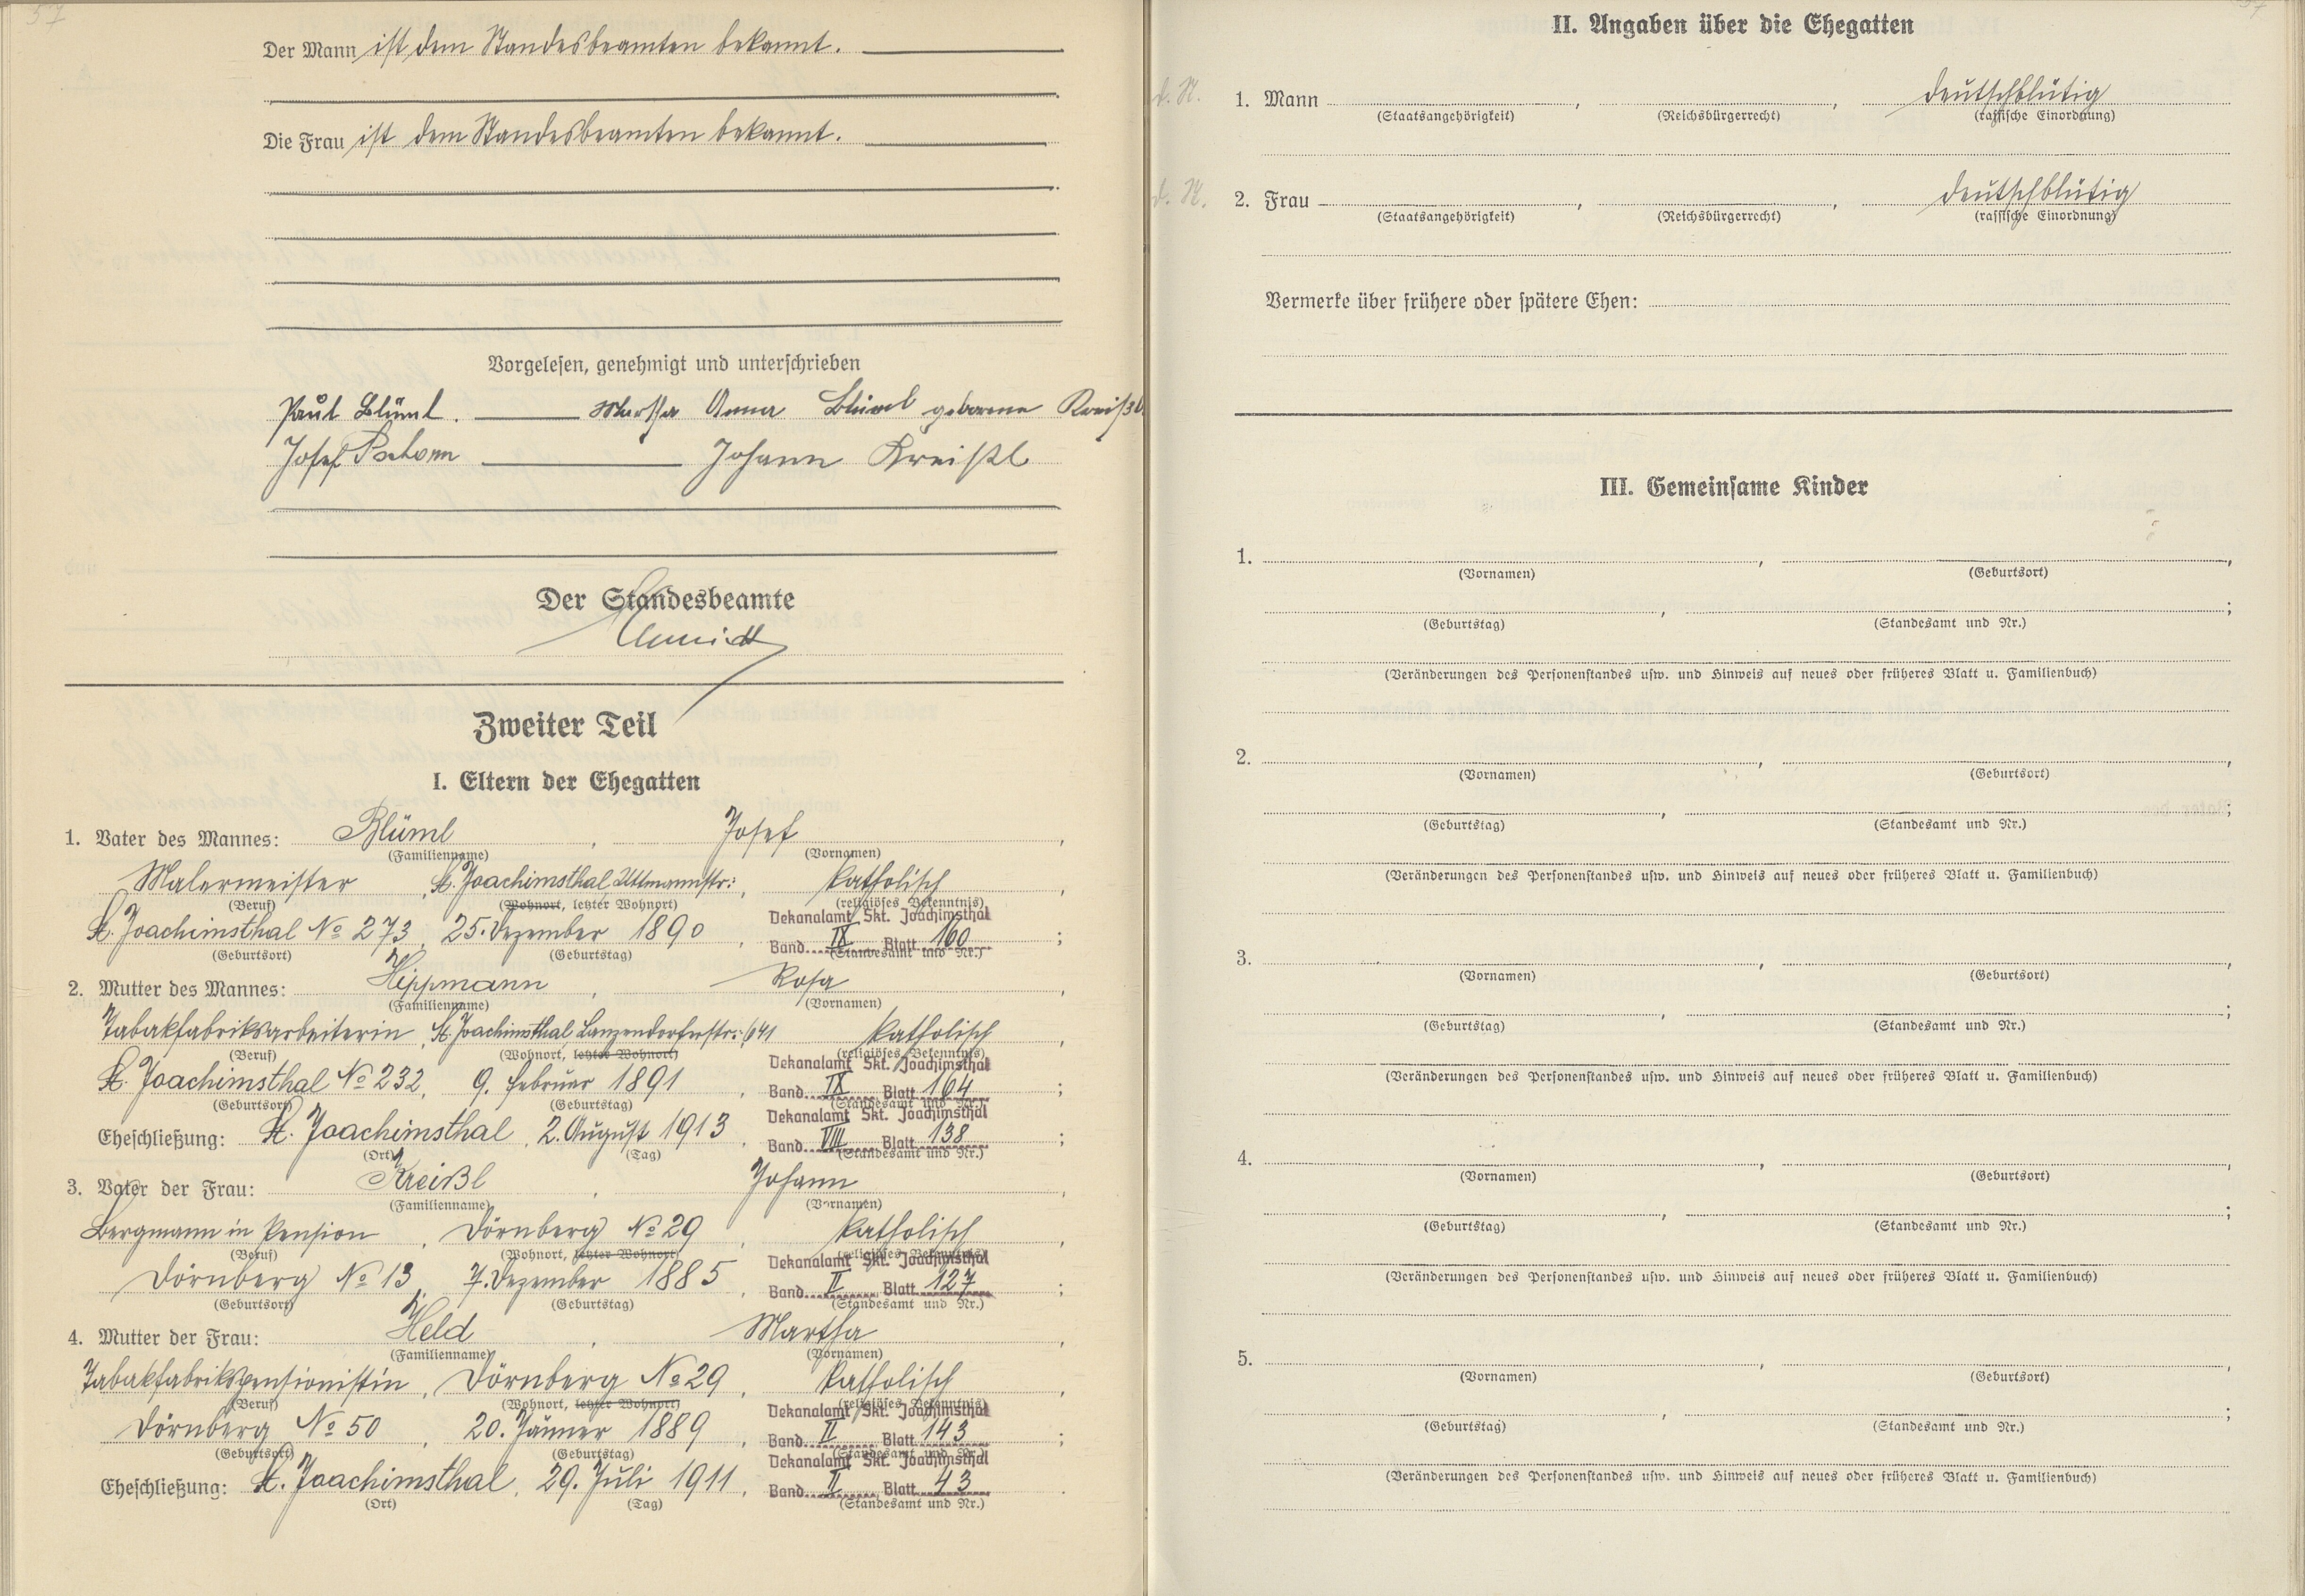 57
Der Mann ist dem Standesbeamten bekannt.
Die Frau ist dem Standesbeamten bekannt.
Vorgelesen, genehmigt und unterschrieben
Paul Blüml. Martha Anna Blüml geborene Kreißl
Josef Johann Kreißl
Der Standesbeamte
Schmidt
Zweiter Teil
I. Eltern der Ehegatten
1. Vater des Mannes: Blüml, Josef,
(Familienname) (Vornamen)
Malermeister, St. Joachimsthal, Uttmannstr:, katholisch,
(Beruf) (Wohnort, letzter Wohnort) (religiöses Bekenntnis)
St. Joachimsthal № 273, 25. Dezember 1890, Dekanalamt Skt. Joachimsthal
Band IX Blatt 160;
(Geburtsort) (Geburtstag) (Standesamt und Nr.)
2. Mutter des Mannes: Hippmann, Rosa,
(Familienname) (Vornamen)
Tabakfabriksarbeiterin, St. Joachimsthal, Lanzendorferstr: 641 katholisch,
(Beruf) (Wohnort, letzter Wohnort) (religiöses Bekenntnis)
St. Joachimsthal № 232, 9. Februar 1891, Dekanalamt Skt. Joachimsthal
Band IX Blatt 164;
(Geburtsort) (Geburtstag) (Standesamt und Nr.)
Eheschließung: St. Joachimsthal, 2. August 1913, Dekanalamt Skt. Joachimsthal
Band VIII Blatt 138;
(Ort) (Tag) (Standesamt und Nr.)
3. Vater der Frau: Kreißl, Johann,
(Familienname) (Vornamen)
Bergmann in Pension, Dörnberg № 29, katholisch,
(Beruf) (Wohnort, letzter Wohnort) (religiöses Bekenntnis)
Dörnberg № 13, 7. Dezember 1885, Dekanalamt Skt. Joachimsthal
Band II Blatt 127;
(Geburtsort) (Geburtstag) (Standesamt und Nr.)
4. Mutter der Frau: Held, Martha,
(Familienname) (Vornamen)
Tabakfabrikspensionistin, Dörnberg № 29, katholisch,
(Beruf) (Wohnort, letzter Wohnort) (religiöses Bekenntnis)
Dörnberg № 50, 20. Jänner 1889, Dekanalamt Skt. Joachimsthal
Band II Blatt 143;
(Geburtsort) (Geburtstag) (Standesamt und Nr.)
Eheschließung: St. Joachimsthal, 29. Juli 1911, Dekanalamt Skt. Joachimsthal
Band II Blatt 43.
(Ort) (Tag) (Standesamt und Nr.)
II. Angaben über die Ehegatten
1. Mann , , deutschblütig
(Staatsangehörigkeit) (Reichsbürgerrecht) (rassische Einordnung)
2. Frau , , deutschblütig
(Staatsangehörigkeit) (Reichsbürgerrecht) (rassische Einordnung)
Vermerke über frühere oder spätere Ehen:
III. Gemeinsame Kinder
1. , ,
(Vornamen) (Geburtsort)
, ;
(Geburtstag) (Standesamt und Nr.)
(Veränderungen des Personenstandes usw. und Hinweis auf neues oder früheres Blatt u. Familienbuch)
2. , ,
(Vornamen) (Geburtsort)
, ;
(Geburtstag) (Standesamt und Nr.)
(Veränderungen des Personenstandes usw. und Hinweis auf neues oder früheres Blatt u. Familienbuch)
3. , ,
(Vornamen) (Geburtsort)
, ;
(Geburtstag) (Standesamt und Nr.)
(Veränderungen des Personenstandes usw. und Hinweis auf neues oder früheres Blatt u. Familienbuch)
4. , ,
(Vornamen) (Geburtsort)
, ;
(Geburtstag) (Standesamt und Nr.)
(Veränderungen des Personenstandes usw. und Hinweis auf neues oder früheres Blatt u. Familienbuch)
5. , ,
(Vornamen) (Geburtsort)
, ;
(Geburtstag) (Standesamt und Nr.)
(Veränderungen des Personenstandes usw. und Hinweis auf neues oder früheres Blatt u. Familienbuch)